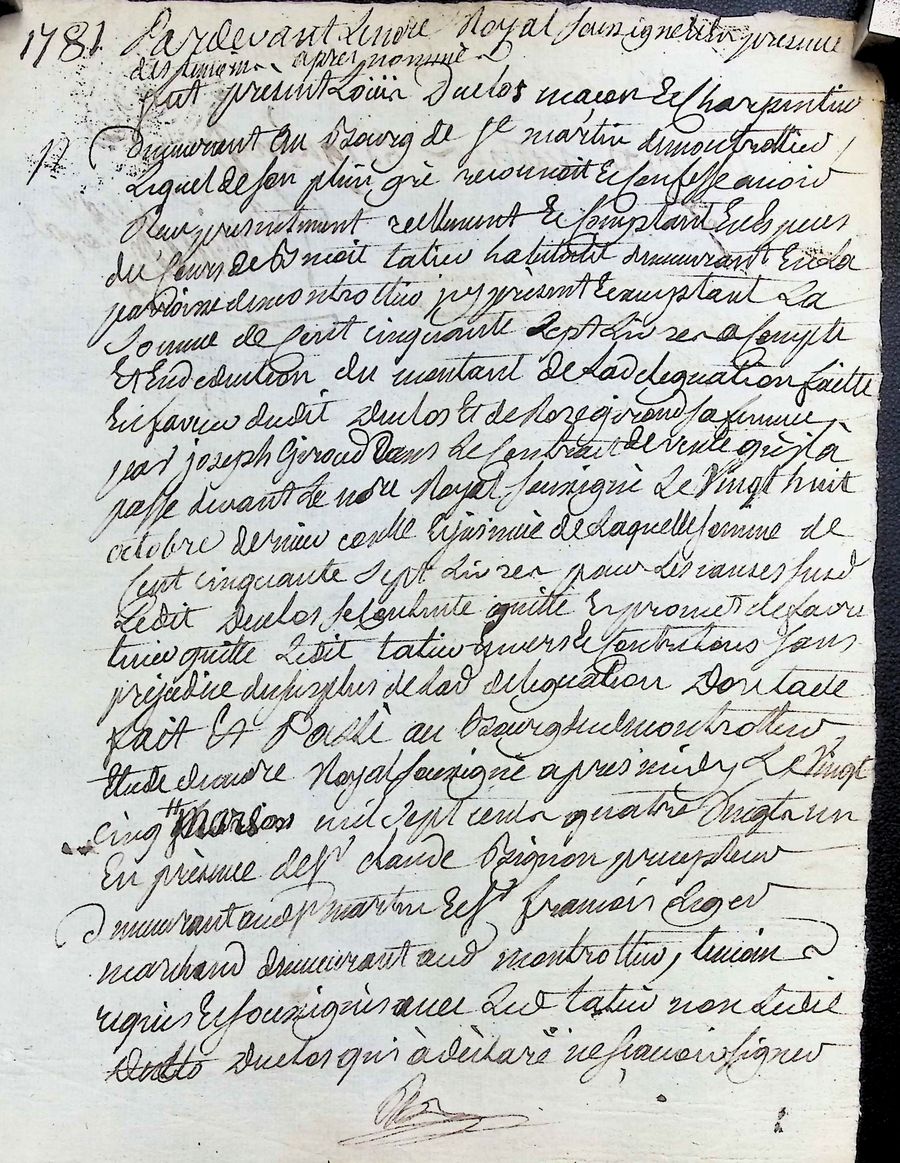 1781 Pardevant Le nore Royal soussigné Et En presence
des temoins après nommés
fut présent Louis Duclos maçon Et Charpentier
12 demeurant au Bourg de St martin de montrottier
Lequel de son plein gré reconnoit Et Confesse avoir
Reçu presentement réellement Et Comptant En Especes
du Cours de Benoit tatieu habitant demeurant En La
paroisse de montrottier jcy présent Et acceptant La
Somme de Cent cinquante Sept Livres a Compte
Et En deduction du montant de La delegation faitte
En faveur dudit Duclos Et de Roze giroud sa femme
par joseph Giroud Dans Le Contrait de vente qu'il a
passé devant Le nore Royal soussigné Le Vingt huit
octobre dernier de Laquelle somme de
Cent cinquante Sept Livres pour Les causes susd
Ledit Duclos se Contente quitte Et promet de faire
tenir quitte Ledit tatieu Envers Et Contre tous sans
préjudice du surplus de Lad delegation Dont acte
fait Et Passé au Bourg dud montrottier
Etude du nore Royal soussigné apres midy Le Vingt
cinq mars mil Sept cents quatre Vingt un
En présence de Sr claude Brignon precepteur
demeurant aud St martin Et Sr francois Leger
marchand demeurant aud montrottier, temoins
requis Et soussignés avec Led tatieu non Ledit
Duclos qui a déclaré ne scavoir signer